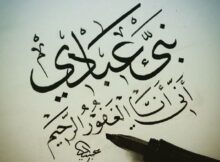 نبّئ عبادي
أنّي أنا الغفور الرحيم